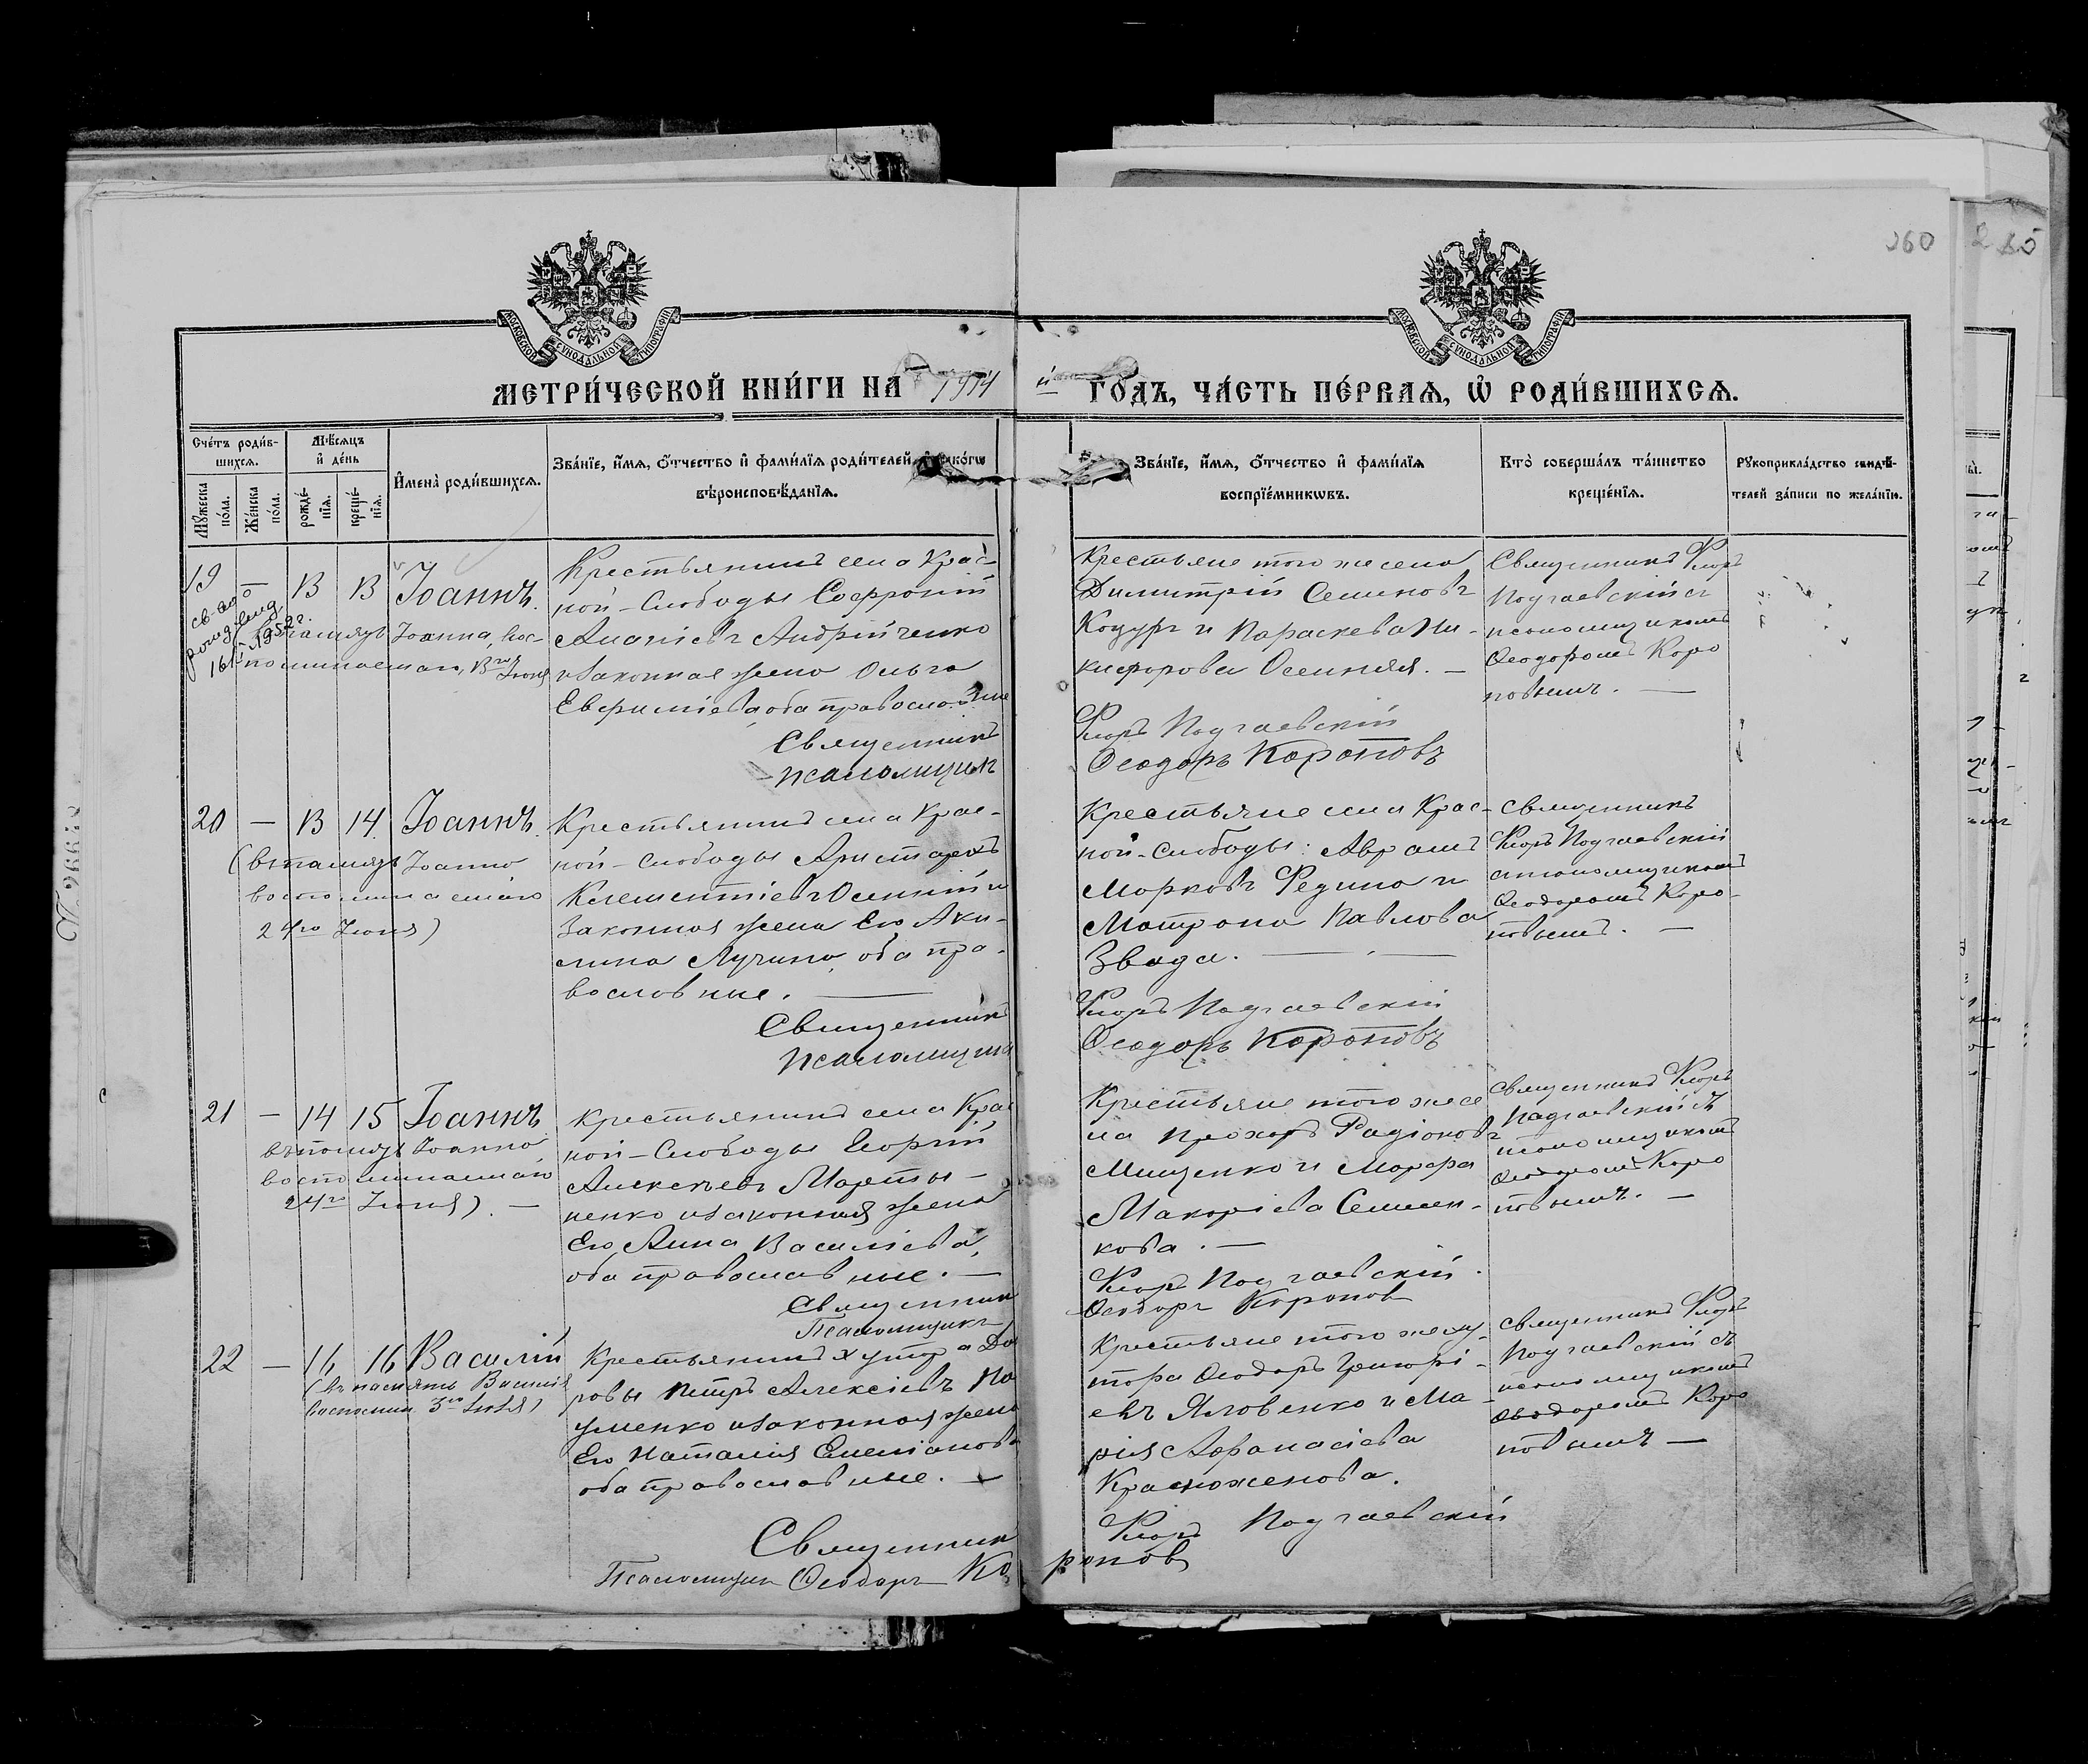 260
МОСКОВСКОЙ СУНОДАЛЬНОЙ ТИПОГРАФІИ
МОСКОВСКОЙ СУНОДАЛЬНОЙ ТИПОГРАФІИ
МЕТРИ́ЧЕСКОЙ КНИ́ГИ НА 1914
й ГОДЪ, ЧА́СТЬ ПЕ́РВАѦ, Ѡ҆ РОДИ́ВШИХСѦ.
Сче́тъ роди́в-
шихсѧ.
Мꙋ́жеска по́ла.
Же́нска по́ла.
Мѣ́сѧцъ
и҆ де́нь
рожде́-
нїѧ.
креще́-
нїѧ.
И҆мена̀ роди́вшихсѧ.
Зва́нїе, и҆́мѧ, ѻ҆́тчество и҆ фами́лїѧ роди́телей, и҆ како́гѡ
вѣроисповѣ́данїѧ.
Зва́нїе, и҆́мѧ, ѻ҆́тчество и҆ фами́лїѧ
воспрїе́мникѡвъ.
Кто̀ соверша́лъ та́инство
креще́нїѧ.
Рꙋкоприкла́дство свидѣ́-
телей за́писи по жела́нїю.
19 — 13 13 Іоаннъ.
св-во
рожд. выд
16/І 1952 г.
память Іоанна, вос-
поминаемаго, 13го Іюня
Крестьянинъ села Крас-
ной-Слободы Софроній
Ананіевъ Андрійченко
и законная жена Ольга
Евфиміева, оба православные
Священникъ
Псаломщикъ
Крестьяне того же села
Димитрій Семеновъ
Коцуръ и Параскева Ни-
кифорова Осенняя. —
Флоръ Подгаевскій
Ѳеодоръ Короповъ
Священникъ Флоръ
Подгаевскій съ
псаломщикомъ
Ѳеодоромъ Коро
повымъ. —
20 — 13 14 Іоаннъ.
(въ память Іоанна
воспоминаемаго
24го Іюня)
Крестьянинъ села Крас-
ной-Слободы Аристархъ
Климентіевъ Осенній и
законная жена Его Аки-
лина Лучина, оба пра-
вославные. —
Священникъ
Псаломщикъ
Крестьяне села Крас-
ной-Слободы: Авраамъ
Марковъ Редина и
Матрона Павлова
Звада. —
Флоръ Подгаевскій
Ѳеодоръ Короповъ
Священникъ
Флоръ Подгаевскій
съ псаломщикомъ
Ѳеодоромъ Коро-
повымъ. —
21 — 14 15 Іоаннъ
въ память Іоанна
воспоминаемаго
24го Іюня). —
Крестьянинъ села Крас
ной-Слободы Георгій
Алексѣевъ Марты-
ненко и законная жена
Его Анна Василіева,
оба православные. —
Священник
Псаломщикъ
Крестьяне того же се
ла Прохоръ Радіоновъ
Мищенко и Марфа
Макаріева Семен-
кова. —
Флоръ Подгаевскій.
Ѳеодоръ Коропов
Священникъ Флоръ
Подгаевскій съ
псаломщикомъ
Ѳеодоромъ Коро
повымъ. —
22 — 16 16 Василій
(въ память Василія
воспомин. 3го Іюля)
Крестьянинъ хутора До
ровы Петръ Алексіевъ На
уменко и законная жена
Его Наталія Емеліанова
оба православные. —
Священник
Псаломщик Ѳеодоръ Ко
Крестьяне того же ху-
тора Ѳеодоръ Григорі-
евъ Яловенко и Ма-
рія Аѳанасіева
Красноженова.
Флоръ Подгаевскій
ропов
Священникъ Флоръ
Подгаевскій съ
псаломщикомъ
Ѳеодоромъ Коро
повымъ —